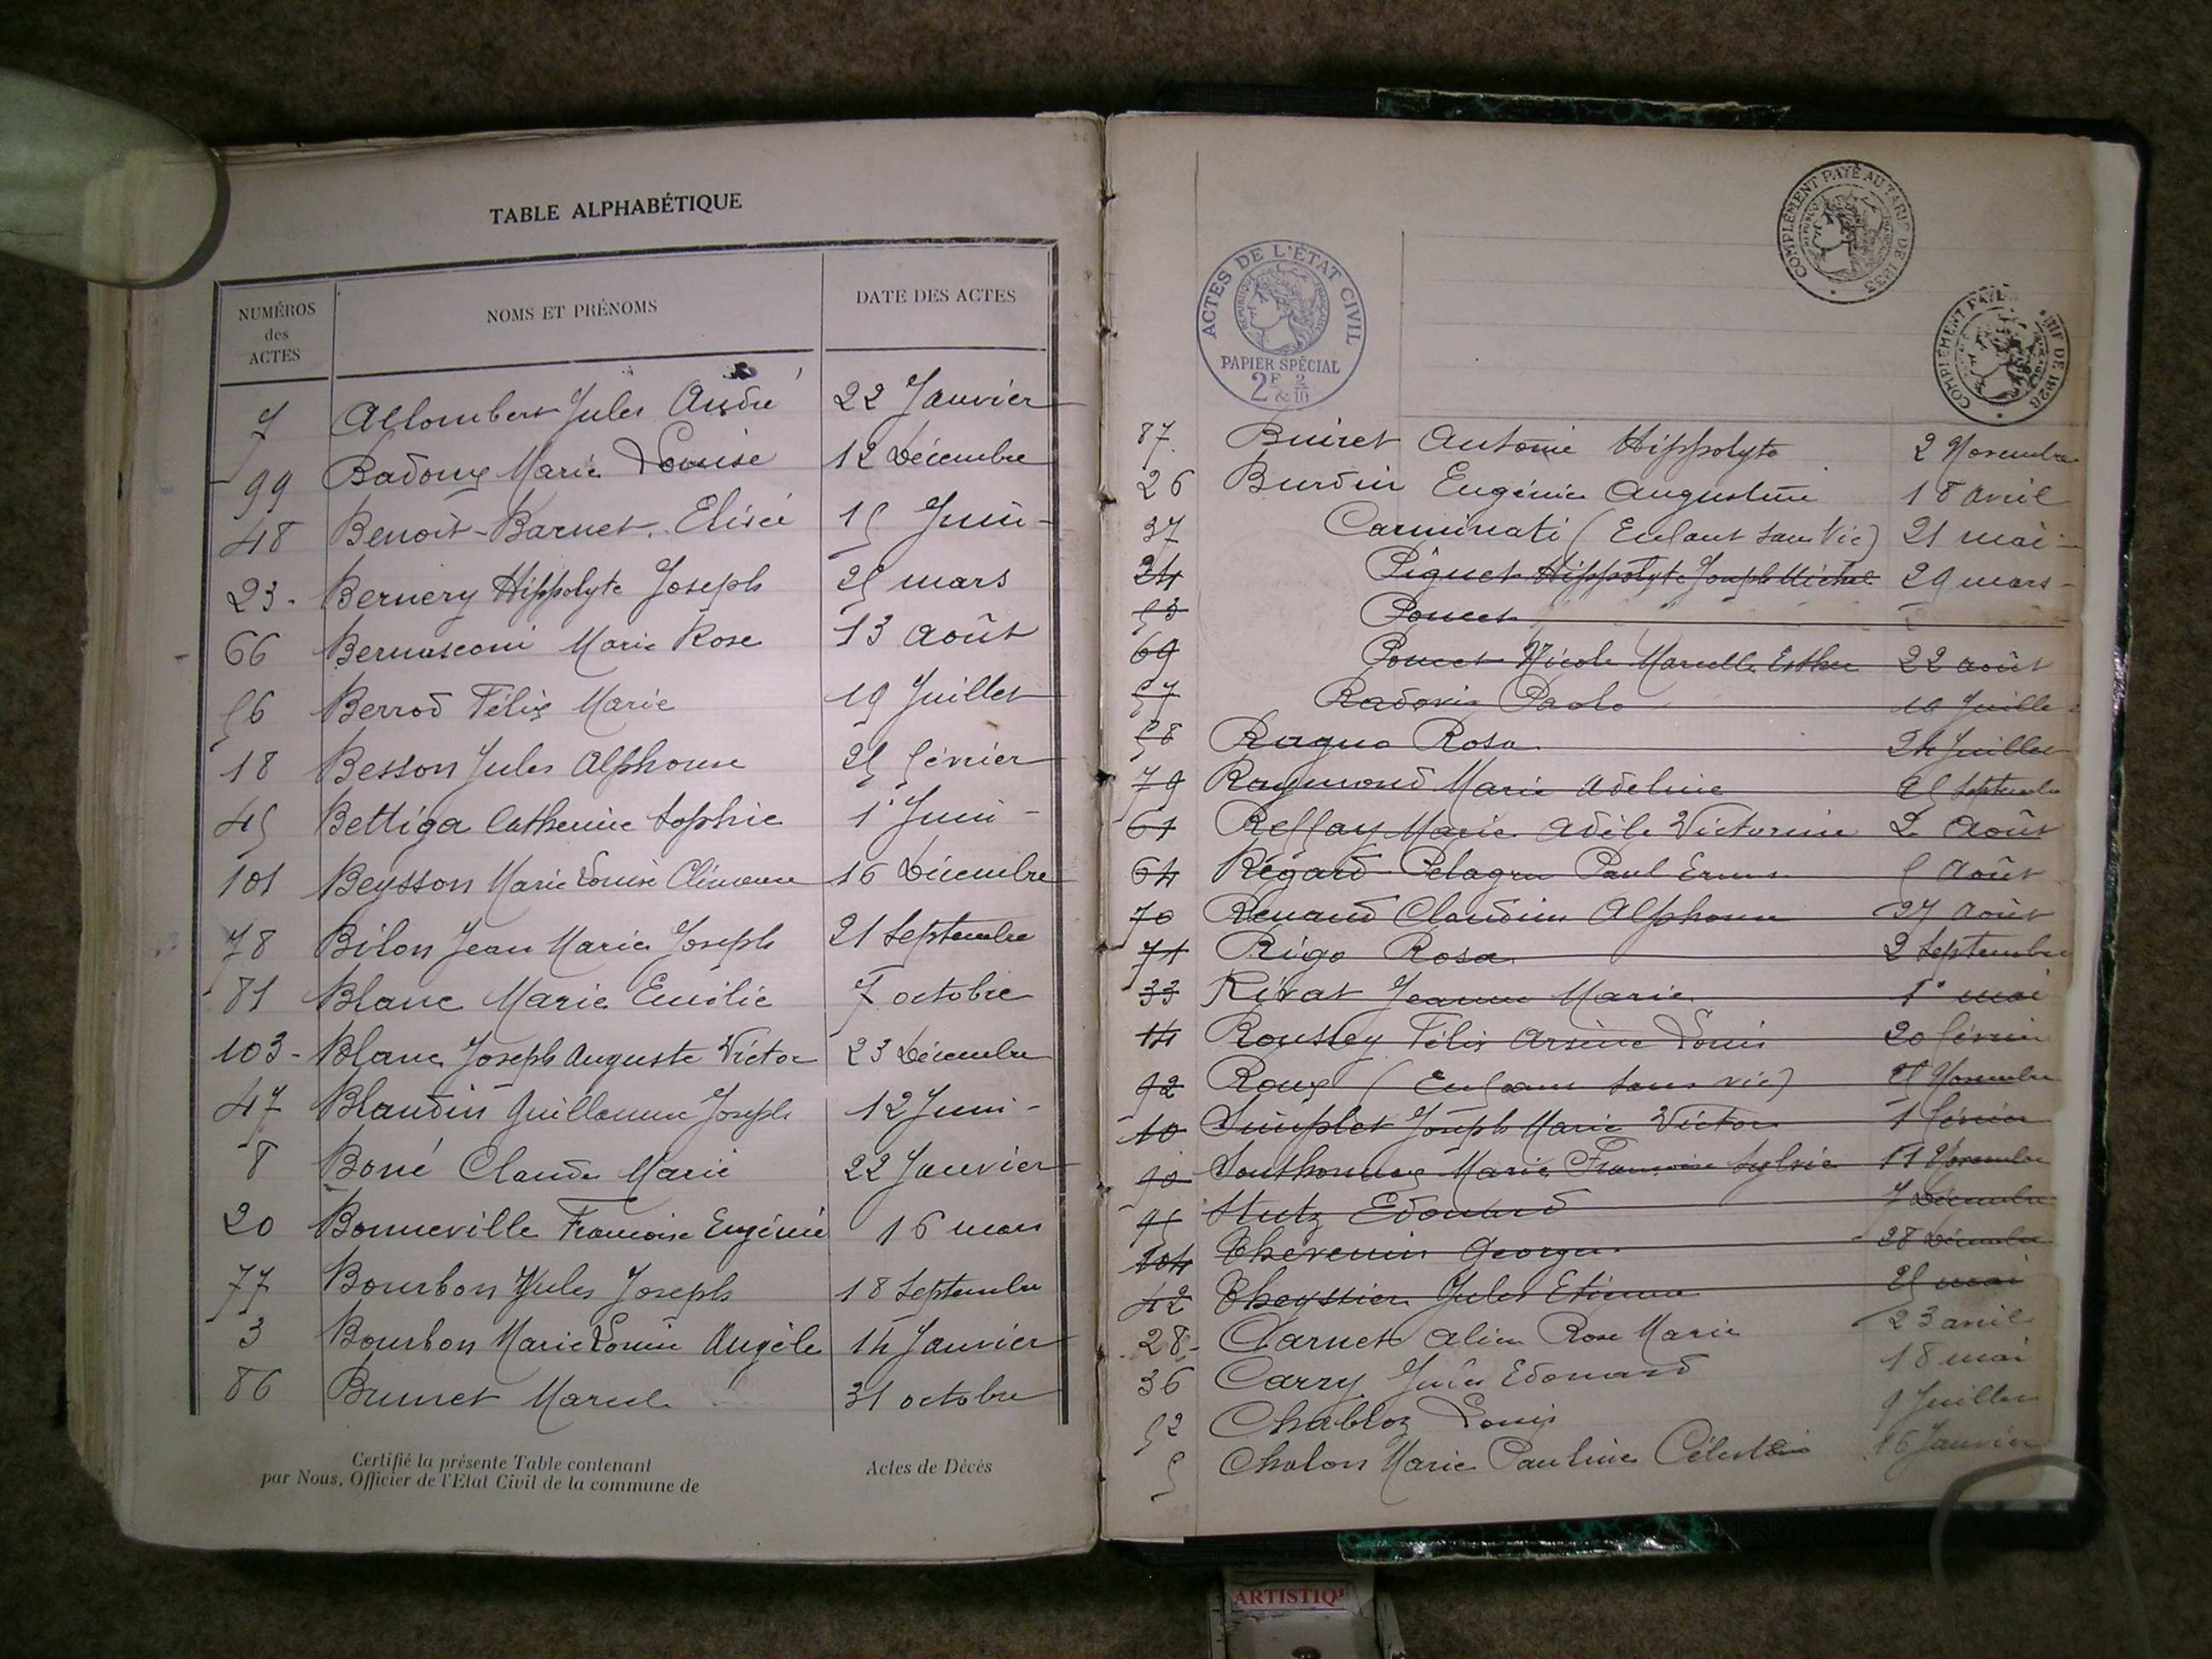 TABLE ALPHABÉTIQUE
NUMÉROS des ACTES NOMS ET PRÉNOMS DATE DES ACTES
7 Allombert Jules André 22 Janvier
99 Badoux Marie Louise 12 Décembre
48 Benoit-Barnet Elisée 15 Juin
23 - Bernery Hippolyte Joseph 25 mars
66 Bernasconi Marie Rose 13 août
56 Berrod Félix Marie 19 Juillet
18 Besson Jules Alphonse 25 février
45 Bettiga Catherine Sophie 1° Juin -
101 Beysson Marie Louise Clémence 16 Décembre
78 Bilon Jean Marie Joseph 21 Septembre
81 Blanc Marie Emilie 7 octobre
103 - Blanc Joseph Auguste Victor 23 Décembre
47 Blandin Guillaume Joseph 12 Juin -
8 Boné Claude Marie 22 Janvier
20 Bonneville Françoise Eugénie 16 mars
77 Bourbon Jules Joseph 18 Septembre
3 Bourbon Marie Louise Angèle 14 Janvier
86 Brunet Marcel 31 octobre
Certifié la présente Table contenant Actes de Décès
par Nous, Officier de l'Etat Civil de la commune de
COMPLÉMENT PAYÉ AU TARIF DE 1933
ACTES DE L'ÉTAT CIVIL
RÉPUBLIQUE FRANÇAISE
PAPIER SPÉCIAL
2F & 2/10
COMPLÉMENT PAYÉ TARIF DE 1926
87 Buiret Antonie Hippolyte 2 Novembre
26 Burdin Eugénie Augustine 18 avril
37 Carminati (Enfant sans Vie) 21 mai -
24 Piguet Hippolyte Joseph Michel 29 mars -
53 Poncet
69 Poncet Nicole Marcelle Esther 22 août
57 Radovix Paolo 19 Juillet
58 Ragno Rosa 24 Juillet
79 Raymond Marie Adeline 25 Septembre
61 Reffay Marie Adèle Victorine 2 Août
64 Régard-Pelagru Paul 5 Août
70 Renaud Claudine Alphonse 27 Août
71 Rigo Rosa 2 Septembre
33 Rivat Jeanne Marie 1° mai
14 Roussey Félix Arsène Louis 20 février
92 Roux (Enfant sans vie) 25 Novembre
10 Simplet Joseph Marie Victor 1 février
90 Southonnax Marie Françoise Sylvie 11 Novembre
95 Stutz Edouard 7 Décembre
104 Thévenin Georges 28 Décembre
42 Theyssier Jules Etienne 25 mai
28 - Carnet Aline Rose Marie 23 avril
36 Carry Jules Edouard 18 mai
52 Chabloz Louis 9 Juillet
5 Chalon Marie Pauline Célestin 16 Janvier
ARTISTIQ